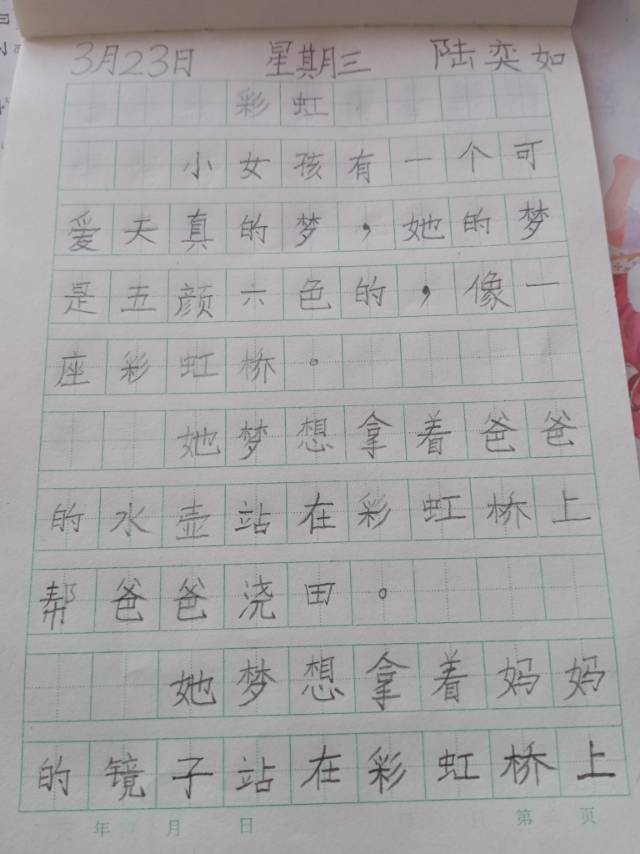 3月23日 星期三 陆奕如
彩虹
小女孩有一个可
爱天真的梦，她的梦
是五颜六色的，像一
座彩虹桥。
她梦想拿着爸爸
的水壶站在彩虹桥上
帮爸爸浇田。
她梦想拿着妈妈
的镜子站在彩虹桥上
年 月 日 第 页